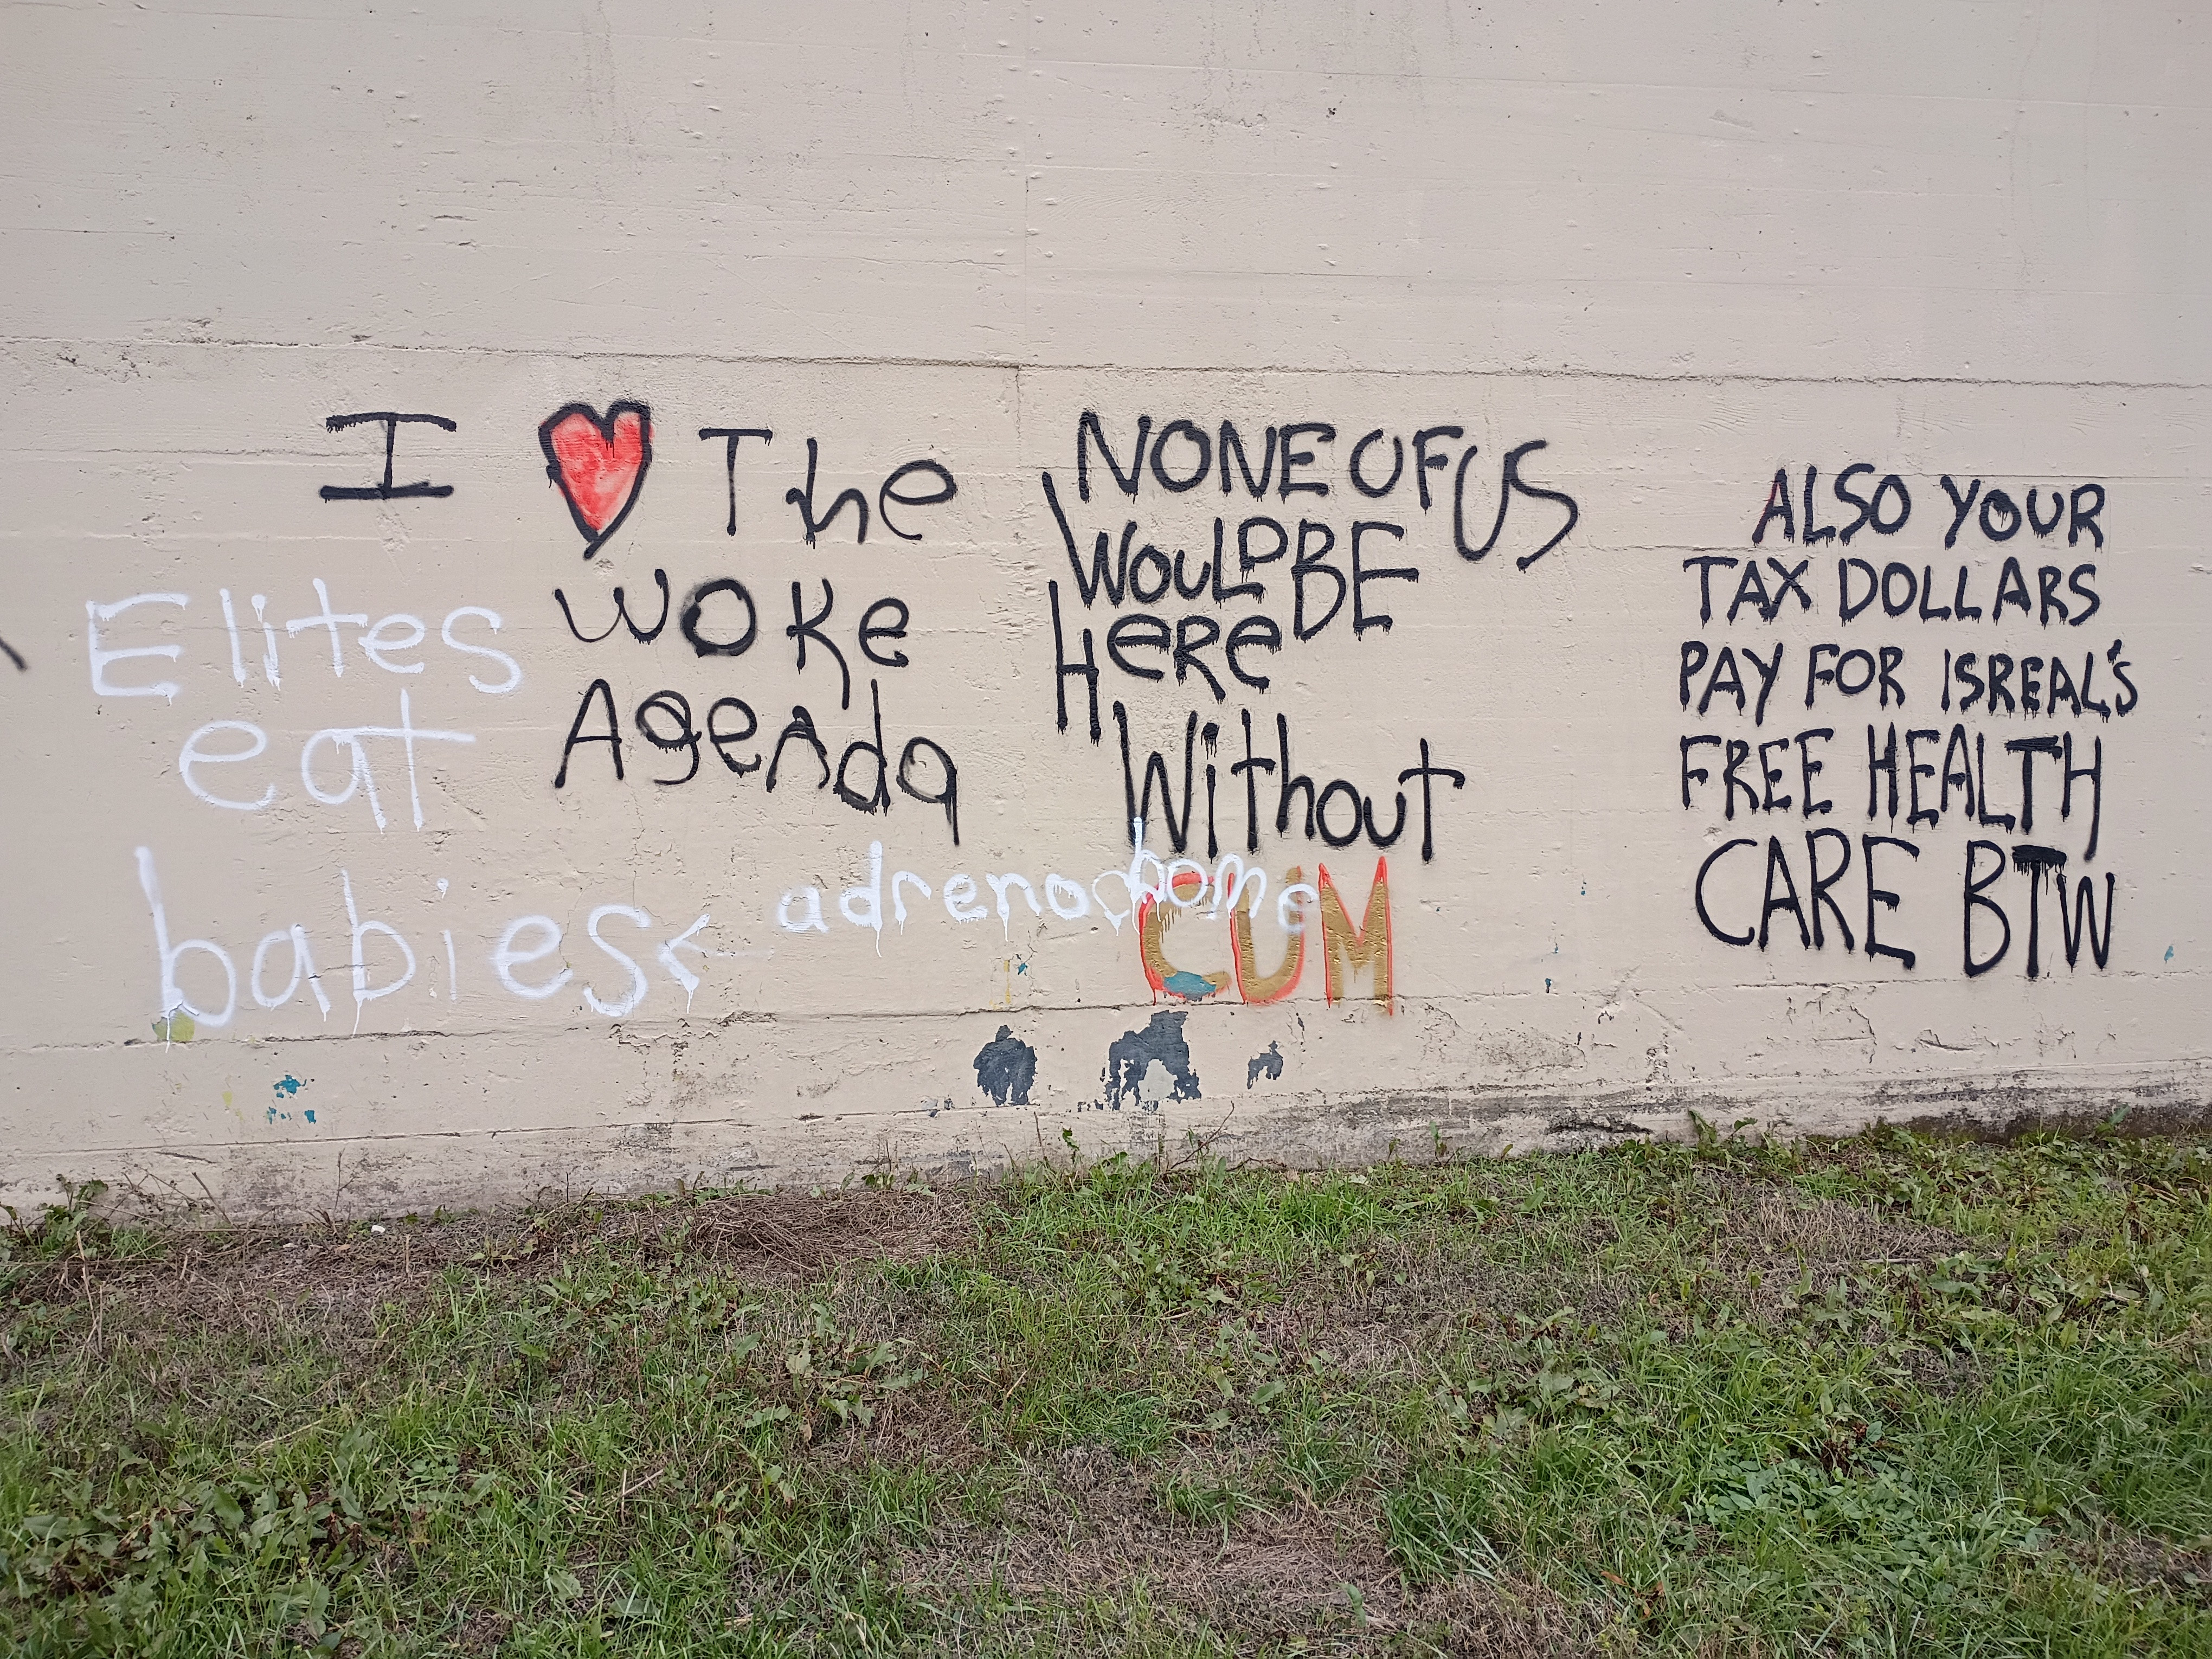 I ❤ The
WOKe
AgeNda
Elites
eat
babies <
adrenochome
NONE OF US
WOULD BE
HeRe
Without
CUM
ALSO YOUR
TAX DOLLARS
PAY FOR ISREAL'S
FREE HEALTH
CARE BTW